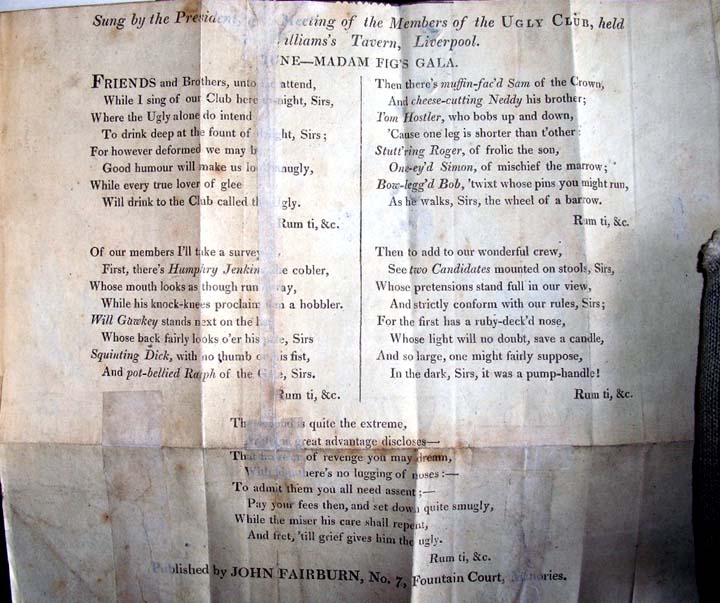 Sung by the President, Meeting of the Members of the UGLY CLUB, held
illiams's Tavern, Liverpool.
TUNE—MADAM FIG'S GALA.
FRIENDS and Brothers, unto me attend,
While I sing of our Club here to-night, Sirs,
Where the Ugly alone do intend
To drink deep at the fount of delight, Sirs;
For however deformed we may be
Good humour will make us look smugly,
While every true lover of glee
Will drink to the Club called the Ugly.
Rum ti, &c.
Of our members I'll take a survey
First, there's Humphry Jenkins, the cobler,
Whose mouth looks as though run away,
While his knock-knees proclaim him a hobbler.
Will Gawkey stands next on the list
Whose back fairly looks o'er his pate, Sirs
Squinting Dick, with no thumb on his fist,
And pot-bellied Ralph of the Gate, Sirs.
Rum ti, &c.
Then there's muffin-fac'd Sam of the Crown,
And cheese-cutting Neddy his brother;
Tom Hostler, who bobs up and down,
'Cause one leg is shorter than t'other:
Stutt'ring Roger, of frolic the son,
One-ey'd Simon, of mischief the marrow;
Bow-legg'd Bob, 'twixt whose pins you might run,
As he walks, Sirs, the wheel of a barrow.
Rum ti, &c.
Then to add to our wonderful crew,
See two Candidates mounted on stools, Sirs,
Whose pretensions stand full in our view,
And strictly conform with our rules, Sirs;
For the first has a ruby-deck'd nose,
Whose light will no doubt, save a candle,
And so large, one might fairly suppose,
In the dark, Sirs, it was a pump-handle!
Rum ti, &c.
The second is quite the extreme,
great advantage discloses—
That of revenge you may dream,
there's no lugging of noses:—
To admit them you all need assent;—
Pay your fees then, and set down quite smugly,
While the miser his care shall repent,
And fret, 'till grief gives him the ugly.
Rum ti, &c.
Published by JOHN FAIRBURN, No. 7, Fountain Court, Minories.